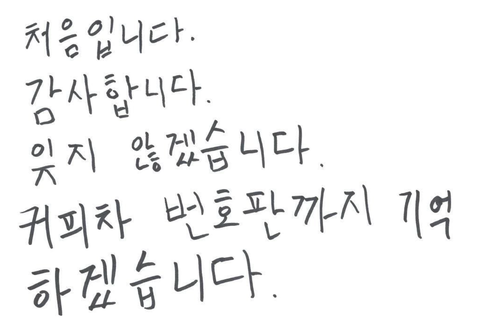 처음입니다.
감사합니다.
잊지 않겠습니다.
커피차 번호판까지 기억
하겠습니다.